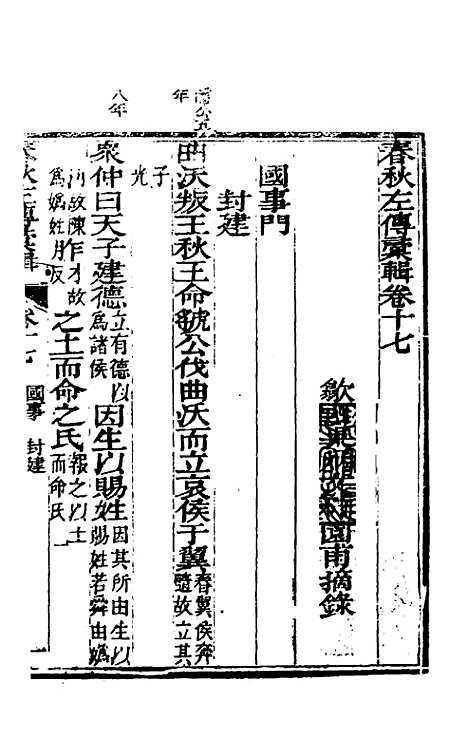 春秋左傳彙輯卷十七
甫摘錄
國事門
封建
曲沃叛王秋王命虢公伐曲沃而立哀侯于翼春翼侯奔隨故立其
子光
八年
衆仲曰天子建德立有德以爲諸侯因生以賜姓因其所由生以賜姓若舜由嬀
汭故陳爲嬀姓胙之土而命之氏報之以土而命氏
卷十七
國事 封建